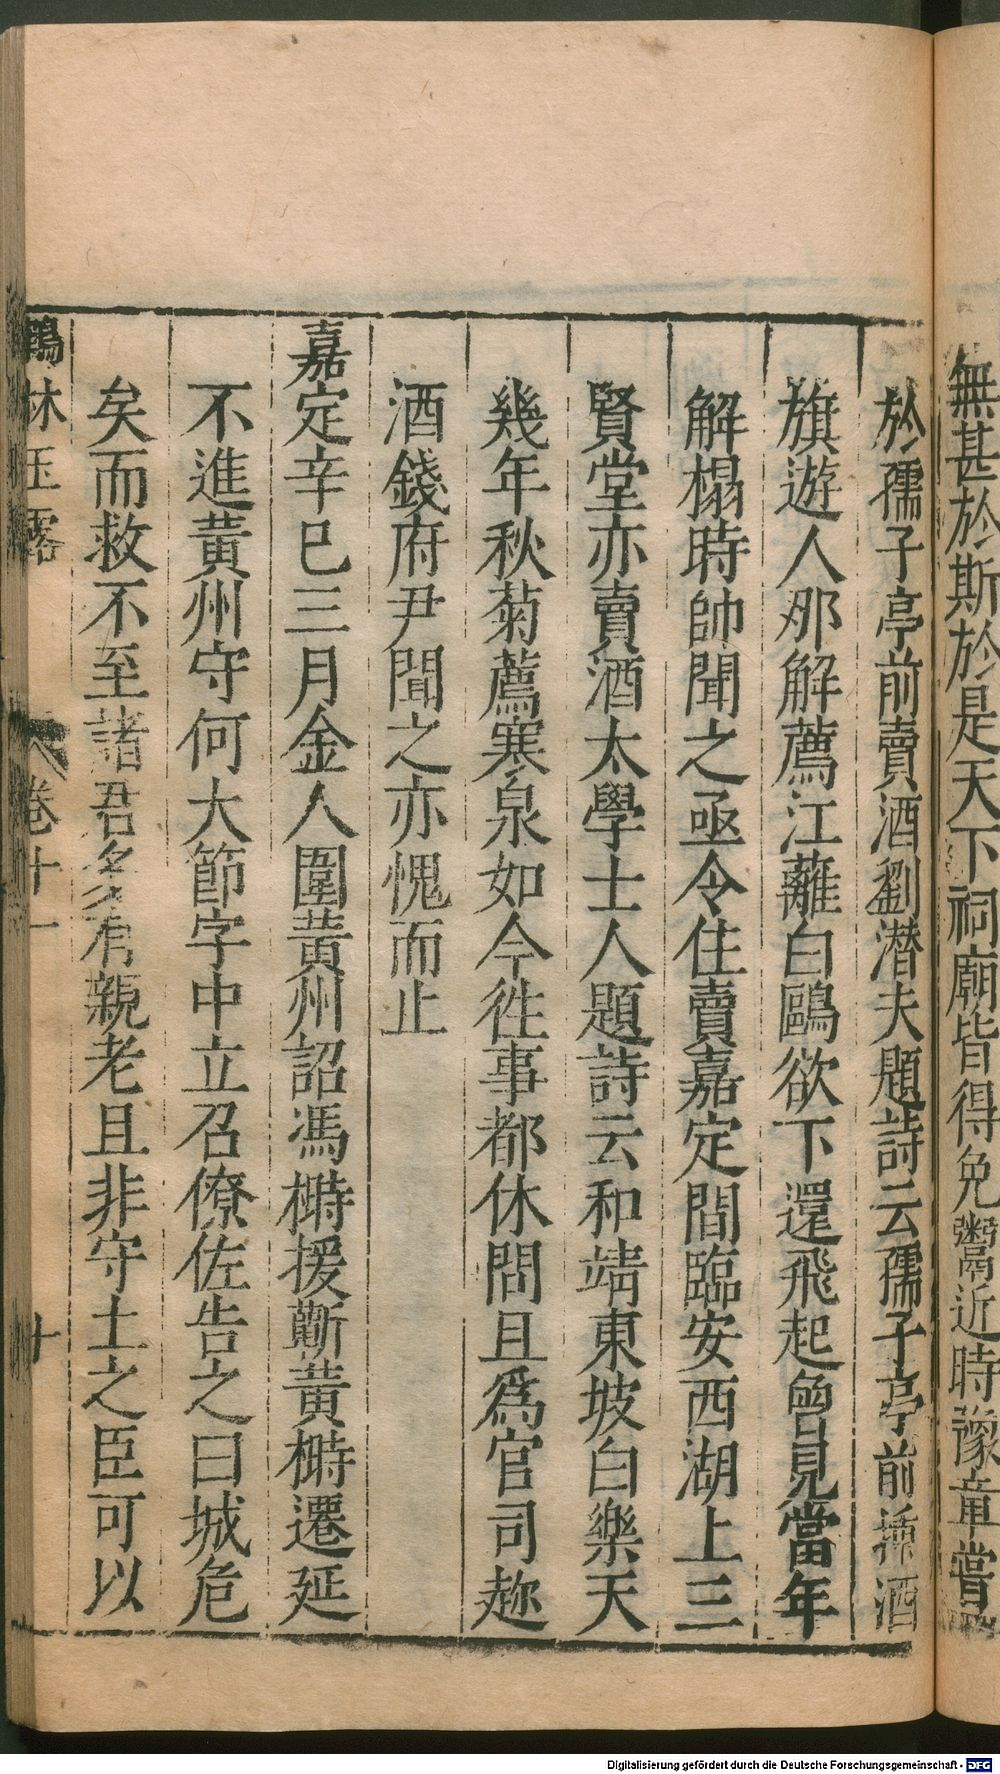 無甚於斯於是天下祠廟皆得免鬻近時豫章嘗
於孺子亭前賣酒劉潛夫題詩云孺子亭前插酒
旗遊人那解薦江蘺白鷗欲下還飛起曾見當年
解榻時帥聞之亟令住賣嘉定間臨安西湖上三
賢堂亦賣酒太學士人題詩云和靖東坡白樂天
幾年秋菊薦寒泉如今徃事都休問且爲官司趂
酒錢府尹聞之亦愧而止
嘉定辛巳三月金人圍黃州詔馮榯援蘄黃榯遷延
不進黃州守何大節字中立召僚佐告之曰城危
矣而救不至諸君多有親老且非守土之臣可以
鶴林玉露 卷十一 十
Digitalisierung gefördert durch die Deutsche Forschungsgemeinschaft - DFG